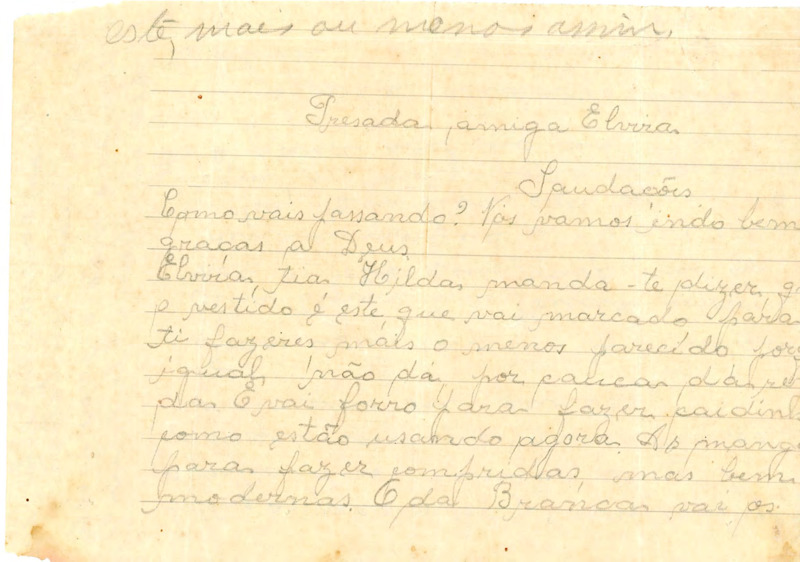 este, mais ou menos assim.
Presada amiga Elvira
Saudacões
Como vais passando? Nós vamos indo bem
graças a Deus
Elviria tia Hilda manda-te dizer, q
o vestido é este que vai marcado para
ti fazeres mais o menos parecido porq
igual não dá por cauca da ren
da E vai forro para fazer caidinh
como estão usando agora As mang
para fazer compridas mas bem
modernas. O da Branca vai os